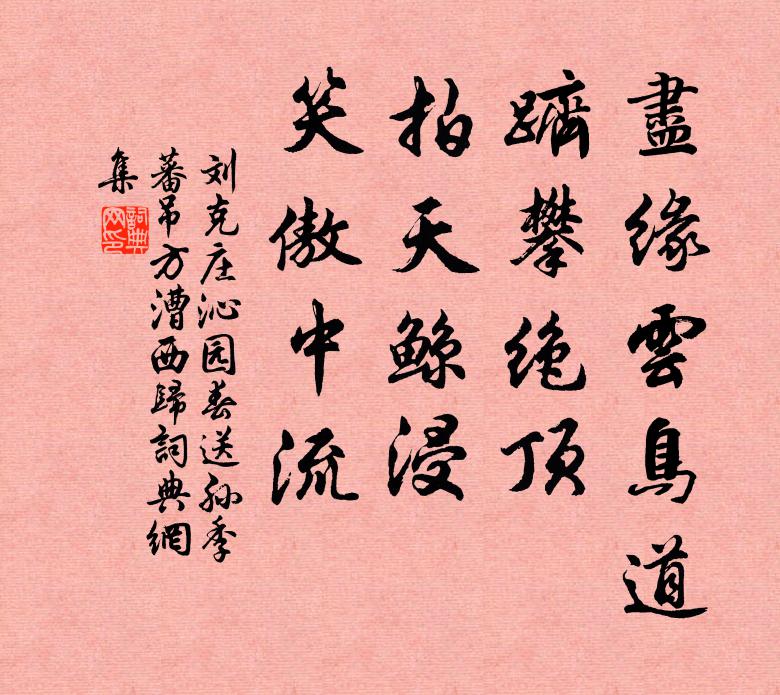 盡緣雲鳥道
躋攀絶頂
拍天鲸浸
笑傲中流
刘克庄沁园春送孙季
蕃吊方漕西歸詞典網
集
詞典
网印